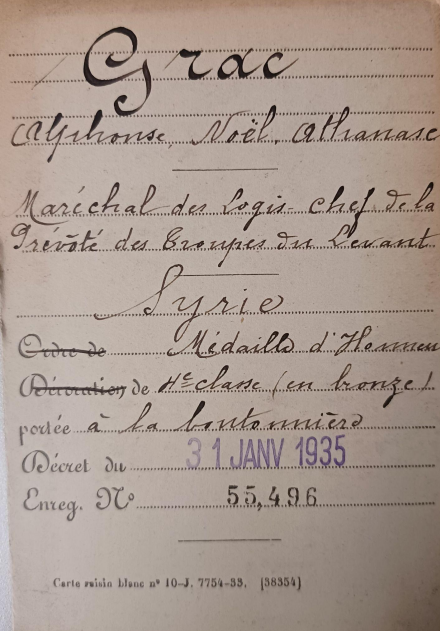 Grac
Alphonse, Noël, Athanase
Maréchal des Logis-chef de la
Prévôté des Groupes du Levant
Syrie
Ordre de Médaille d'Honneu
Décoration de 4e classe (en bronze)
portée à la boutonnière
Décret du 31 JANV 1935
Enreg. No 55,496
Carte raisin blanc n° 10-J. 7754-33. [38354]